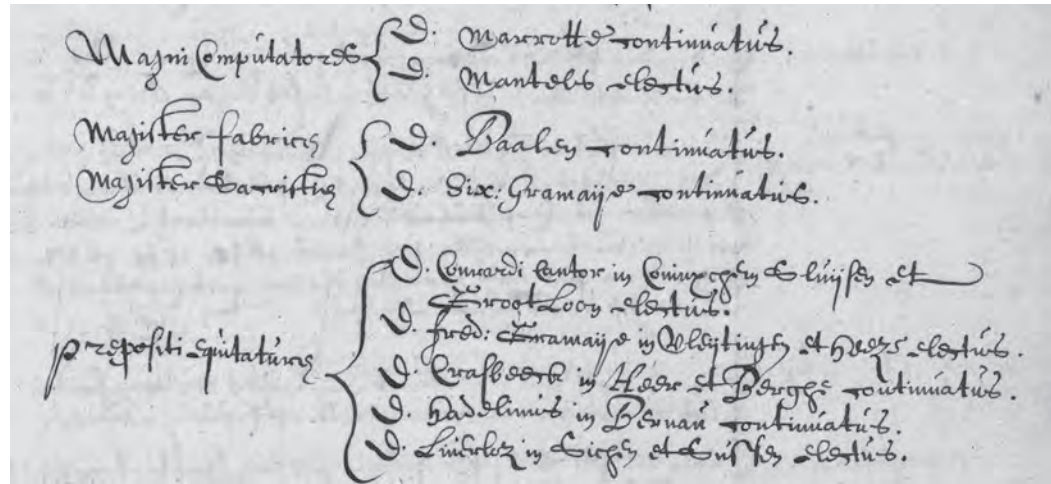 Magni Computatores
D. Marrotte continuatus.
D. Mantels electus.
Magister fabricę
Magister Sacristię
D. Baalen continuatus.
D. Six: Gramaije continuatus.
prepositi equitaturę
D. Conrardi Cantor in Coninxchem Sluijsen et
Groot Loon electus.
D. fred: Gramaije in Vleijtingen et Heeze electus.
D. Crasbeeck in Heer et Berghe continuatus.
D. Hadelinus in Bernau continuatus.
D. Linerloz in Sichen et Sussen electus.